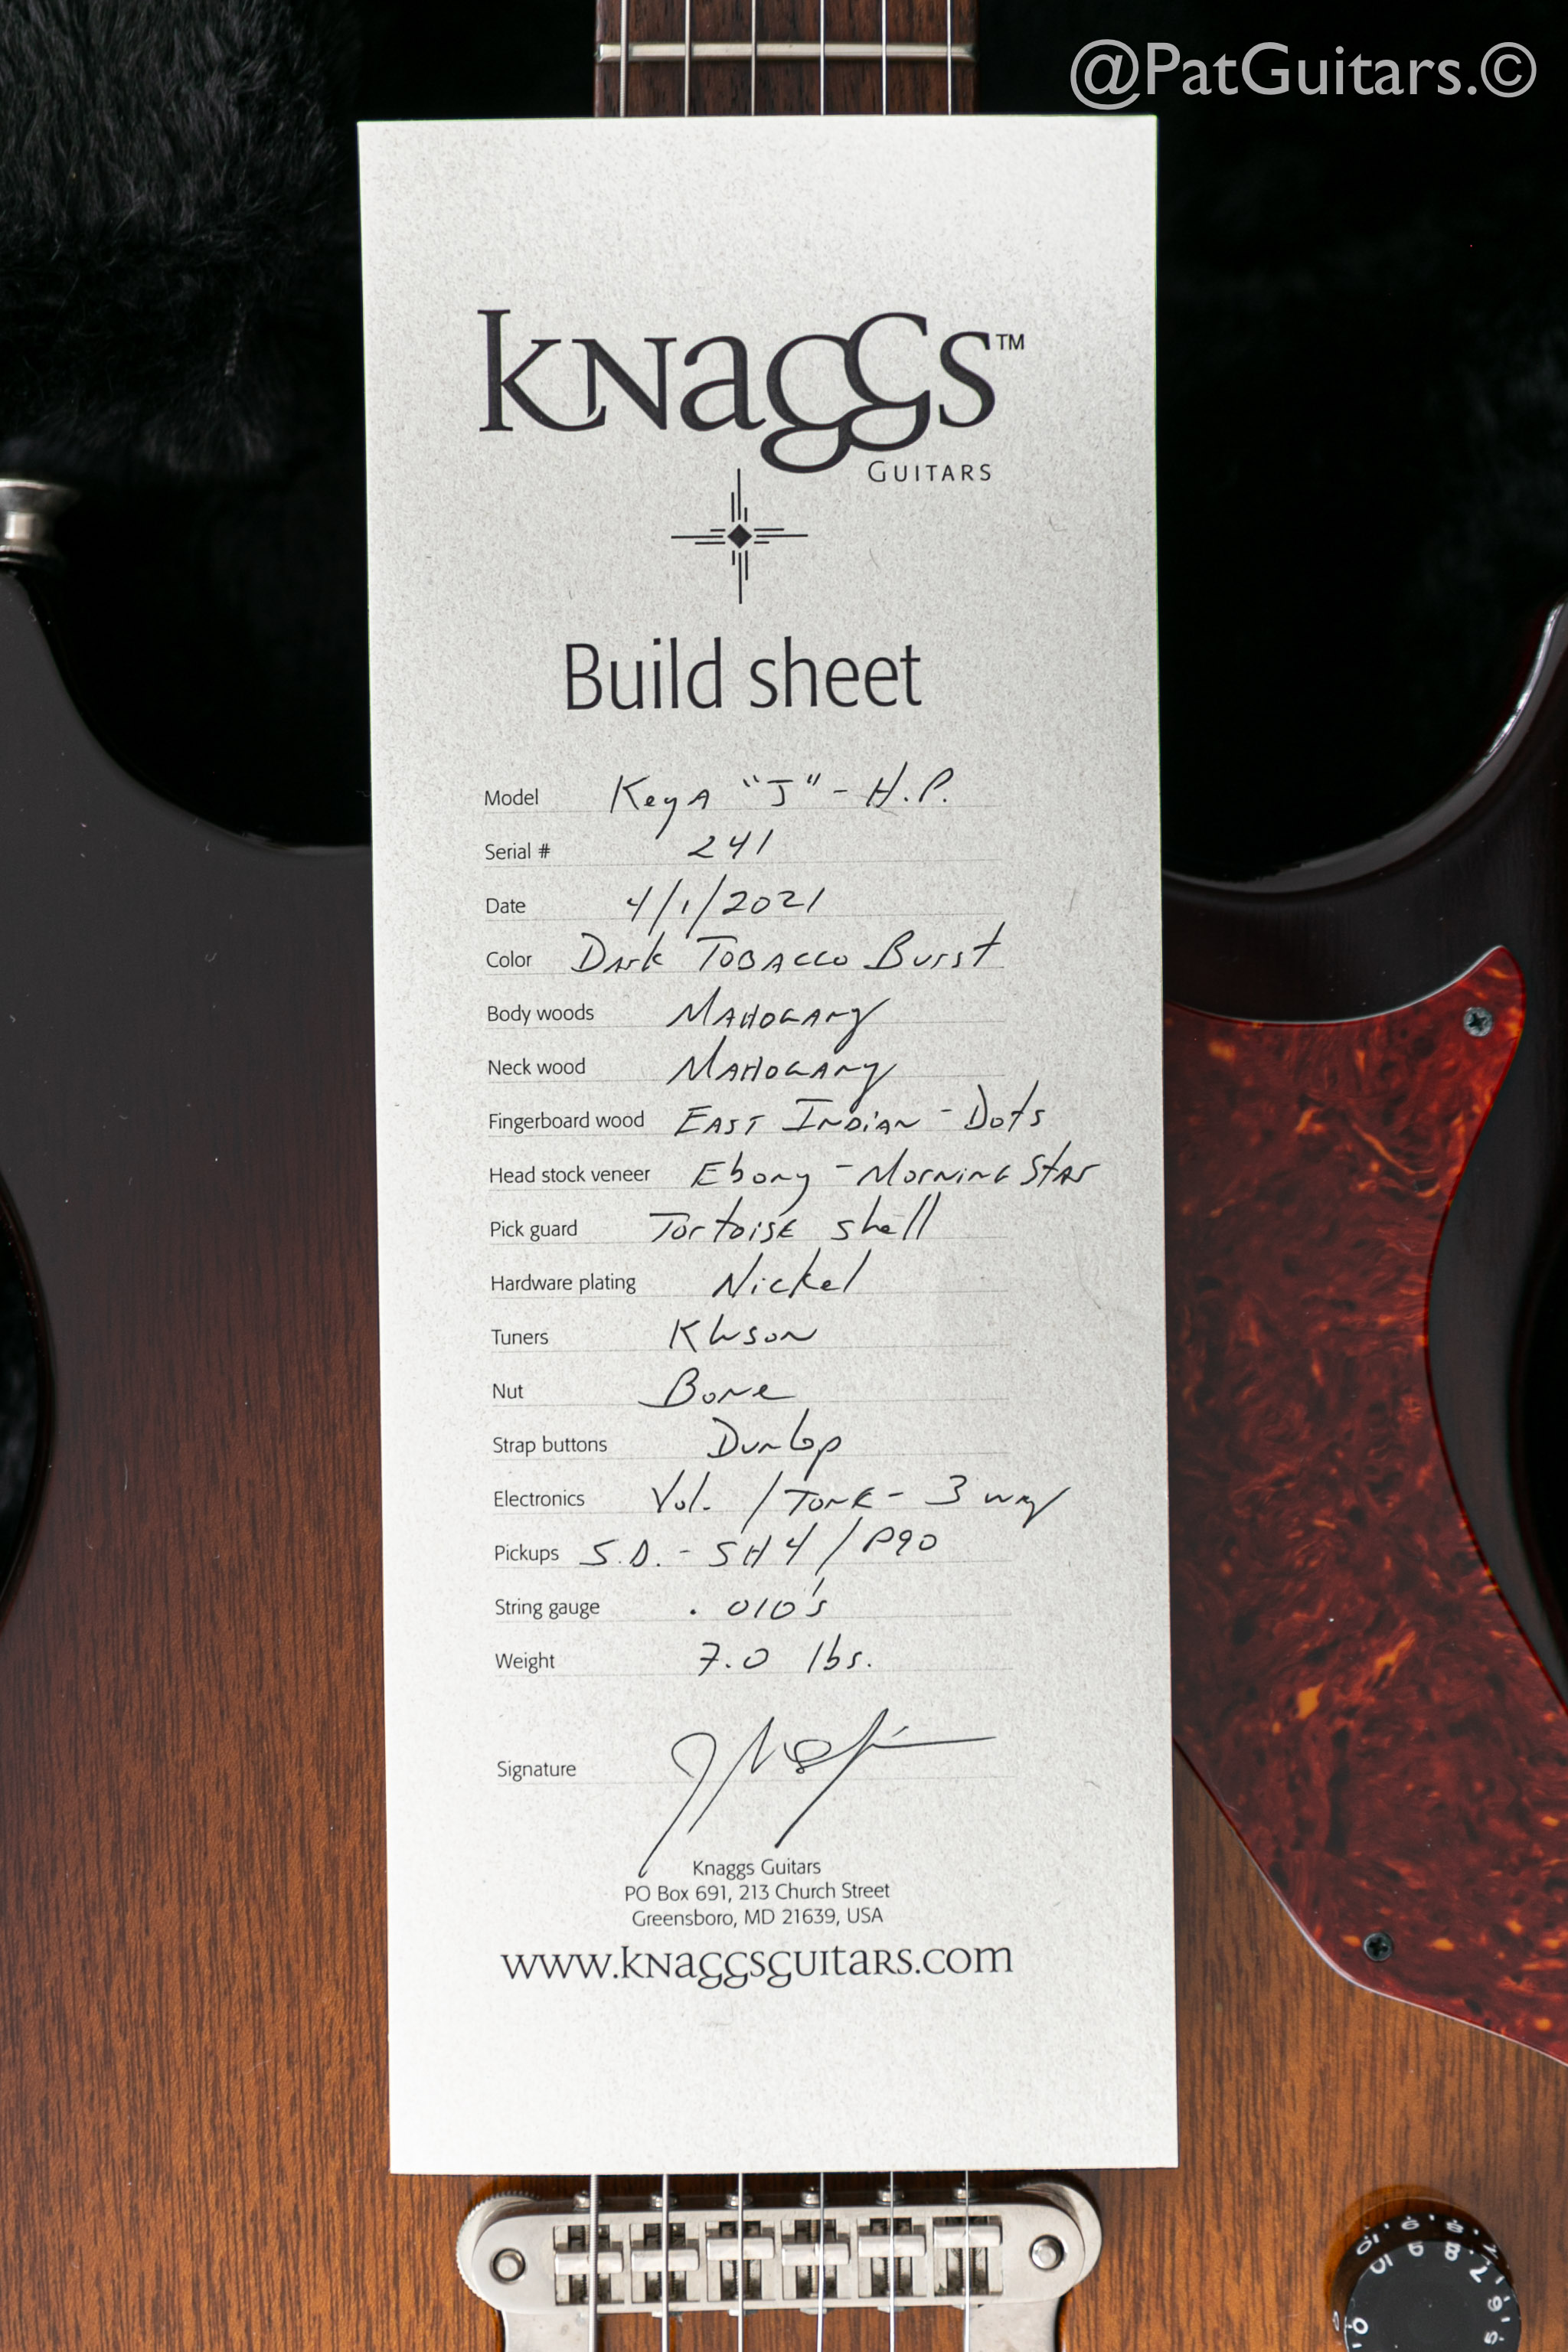 @PatGuitars.©
Knaggs™
Guitars
Build sheet
Model Keya "J" - H.P.
Serial # 241
Date 4/1/2021
Color Dark Tobacco Burst
Body woods Mahogany
Neck wood Mahogany
Fingerboard wood East Indian - Dots
Head stock veneer Ebony - Morning Star
Pick guard Tortoise shell
Hardware plating Nickel
Tuners Kluson
Nut Bone
Strap buttons Dunlop
Electronics Vol. / Tone - 3 way
Pickups S.D. - SH4 / P90
String gauge .010's
Weight 7.0 lbs.
Signature
Knaggs Guitars
PO Box 691, 213 Church Street
Greensboro, MD 21639, USA
www.knaggsguitars.com